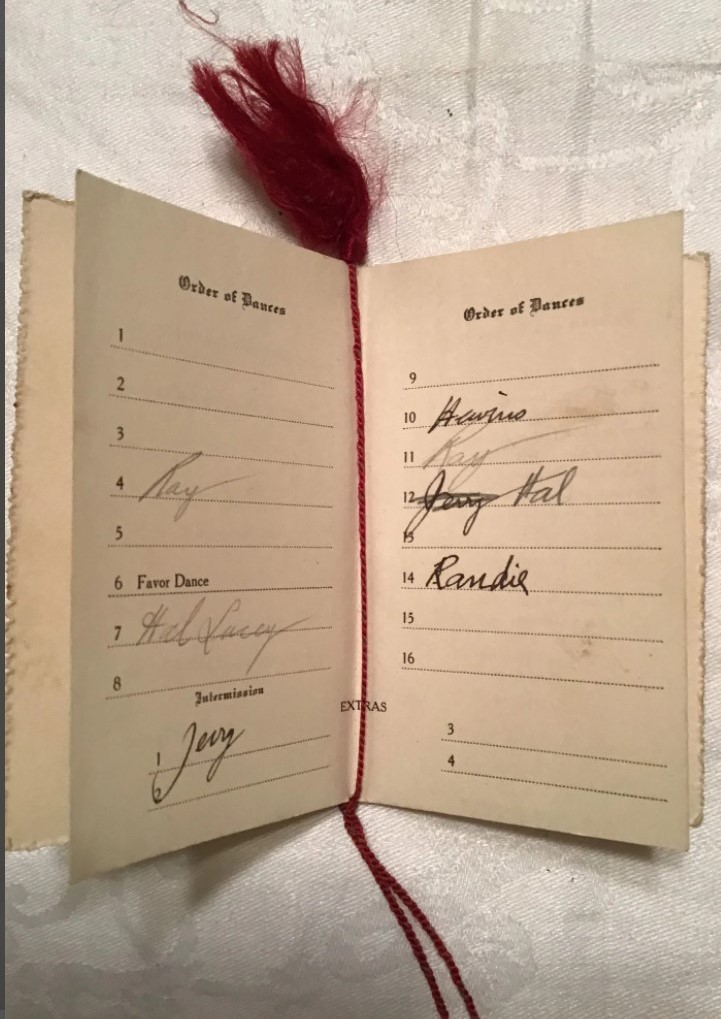 Order of Dances
1
2
3
4 Ray
5
6 Favor Dance
7 Hal Lacey
8
Intermission
1 Jerry
2
Order of Dances
9
10
11 Ray
12 Jerry Hal
13
14 Randie
15
16
EXTRAS
3
4